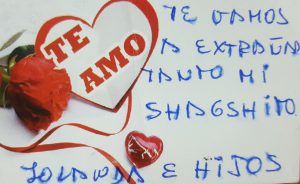 TE AMO
TE VAMOS
A EXTRAÑAR
TANTO MI
SHAGSHITO
YOLANDA E HIJOS